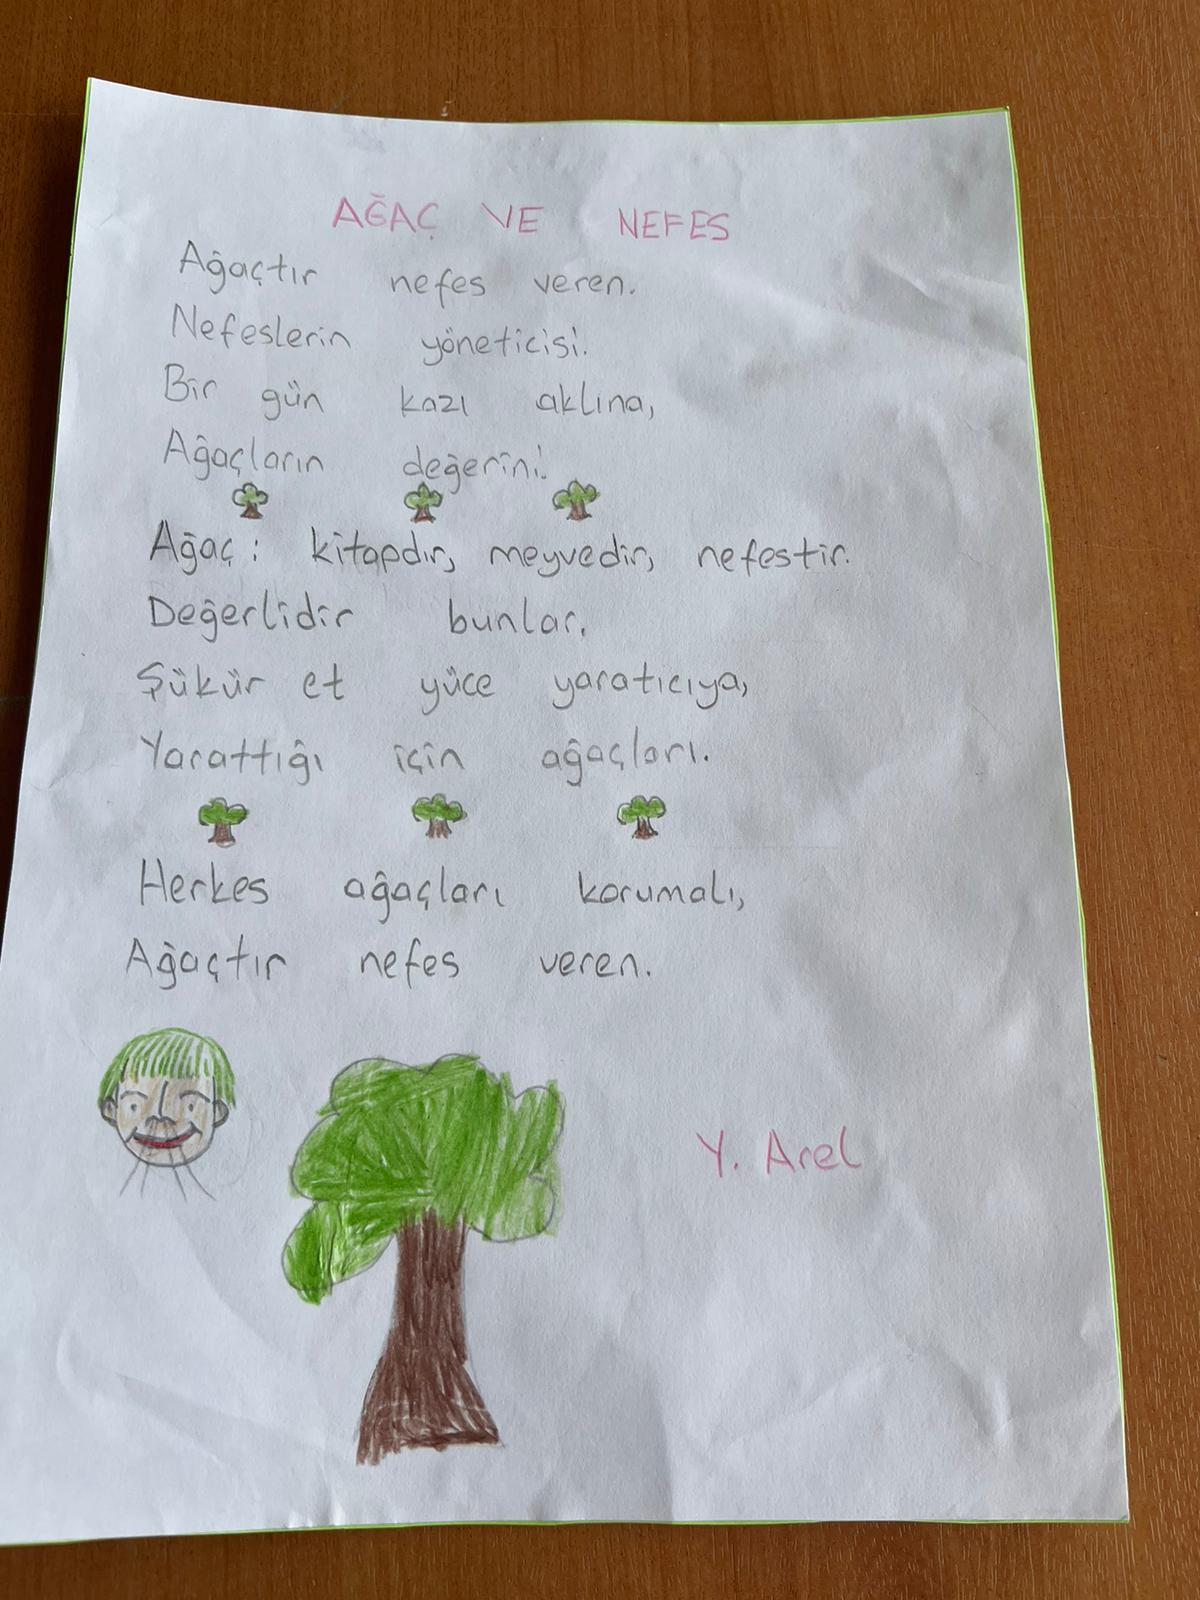 AĞAÇ VE NEFES
Ağaçtır nefes veren.
Nefeslerin yöneticisi.
Bir gün kazı aklına,
Ağaçların değerini.
Ağaç: kitapdır, meyvedir, nefestir.
Değerlidir bunlar.
Şükür et yüce yaratıcıya,
Yarattığı için ağaçları.
Herkes ağaçları korumalı,
Ağaçtır nefes veren.
Y. Arel